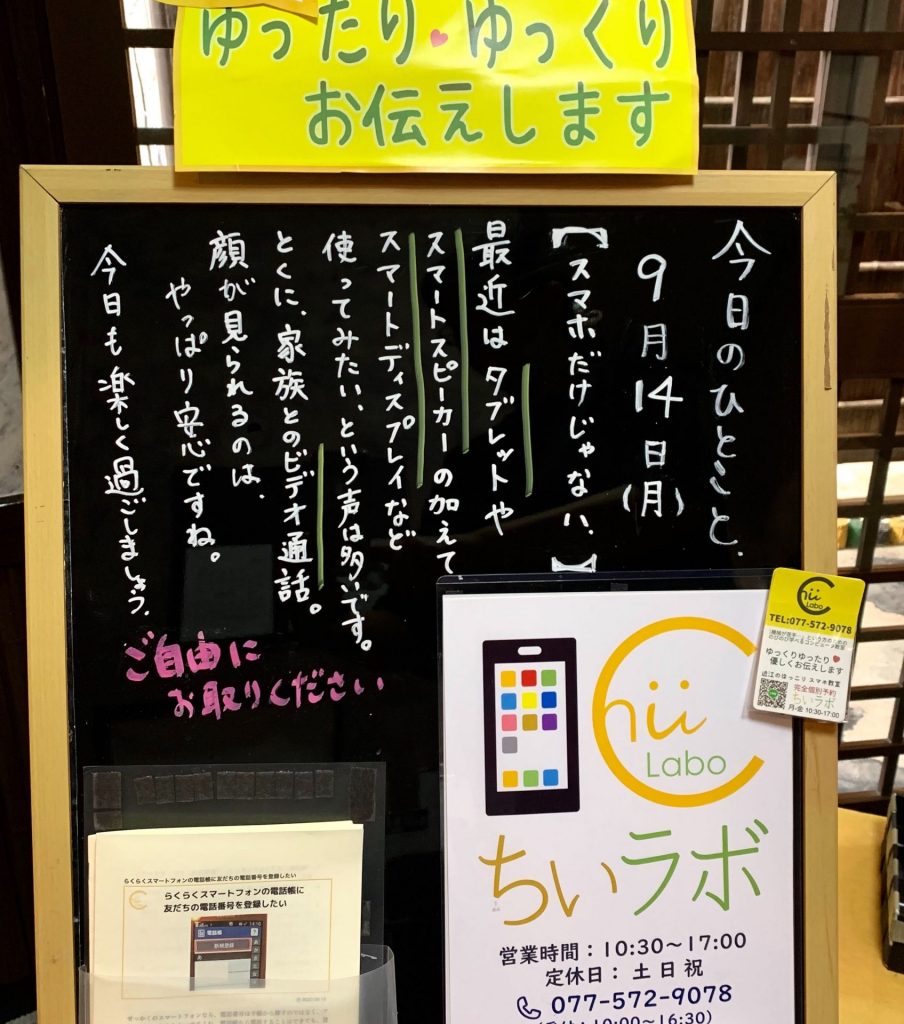 ゆったり♥ゆっくり
お伝えします
今日のひとこと.
9月14日(月)
【スマホだけじゃない、】
最近はタブレットや
スマートスピーカーの加えて
スマートディスプレイなど
使ってみたい、という声は多いです。
とくに、家族とのビデオ通話。
顔が見られるのは、
やっぱり安心ですね。
今日も楽しく過ごしましょう.
ご自由に
お取りください
Chii
Labo
TEL:077-572-9078
ゆっくりゆったり♥
優しくお伝えします
近江のゆっこり スマホ教室
完全個別予約
ちいラボ
月-金 10:30-17:00
Chii
Labo
ちいラボ
営業時間:10:30~17:00
定休日: 土 日 祝
077-572-9078
(受付:10:00~16:30)
らくらくスマートフォンの電話帳に友だちの電話番号を登録したい
らくらくスマートフォンの電話帳に
友だちの電話番号を登録したい
電話帳
新規登録